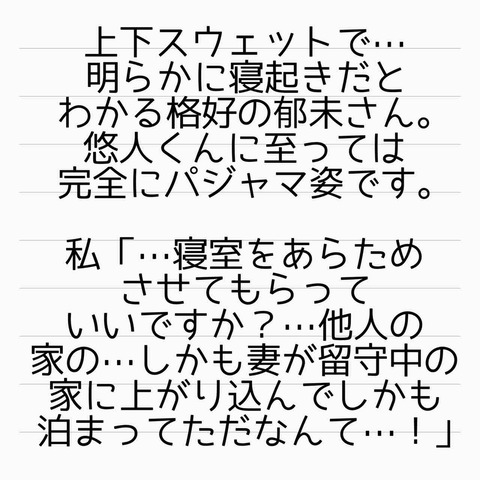 上下スウェットで…
明らかに寝起きだと
わかる格好の郁未さん。
悠人くんに至っては
完全にパジャマ姿です。
私「…寝室をあらため
させてもらって
いいですか？…他人の
家の…しかも妻が留守中の
家に上がり込んでしかも
泊まってただなんて…！」